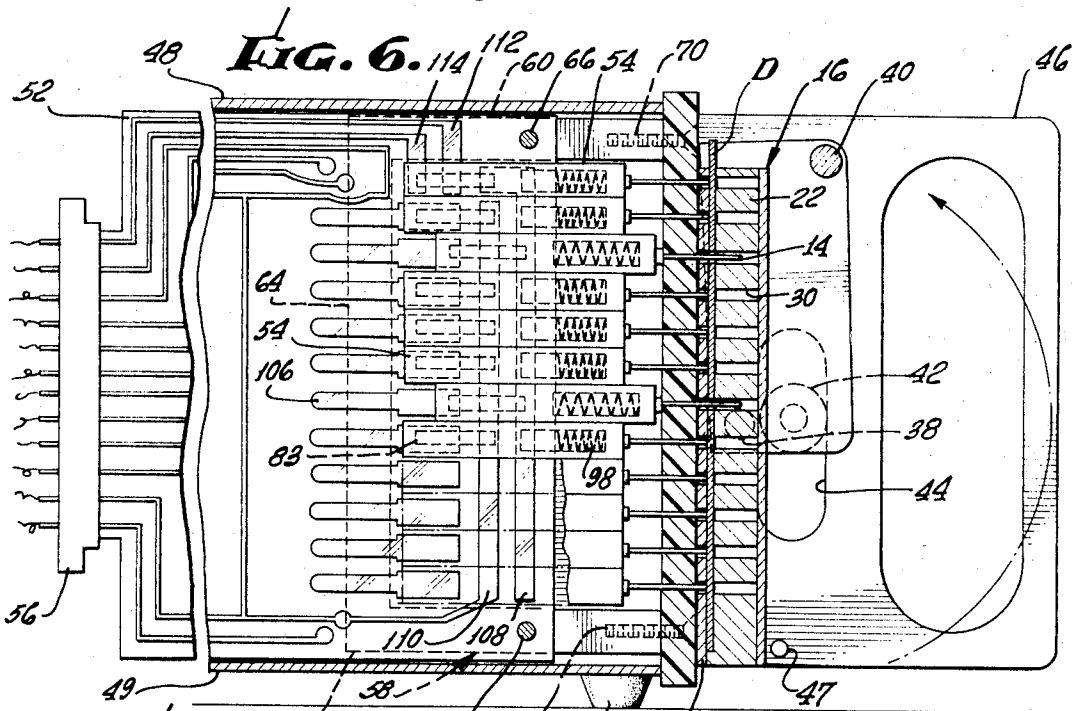 FIG. 6.
48
114
112
60
66
54
70
D
16
40
46
52
22
14
30
64
54
106
42
38
83
98
44
56
110
108
58
49
47